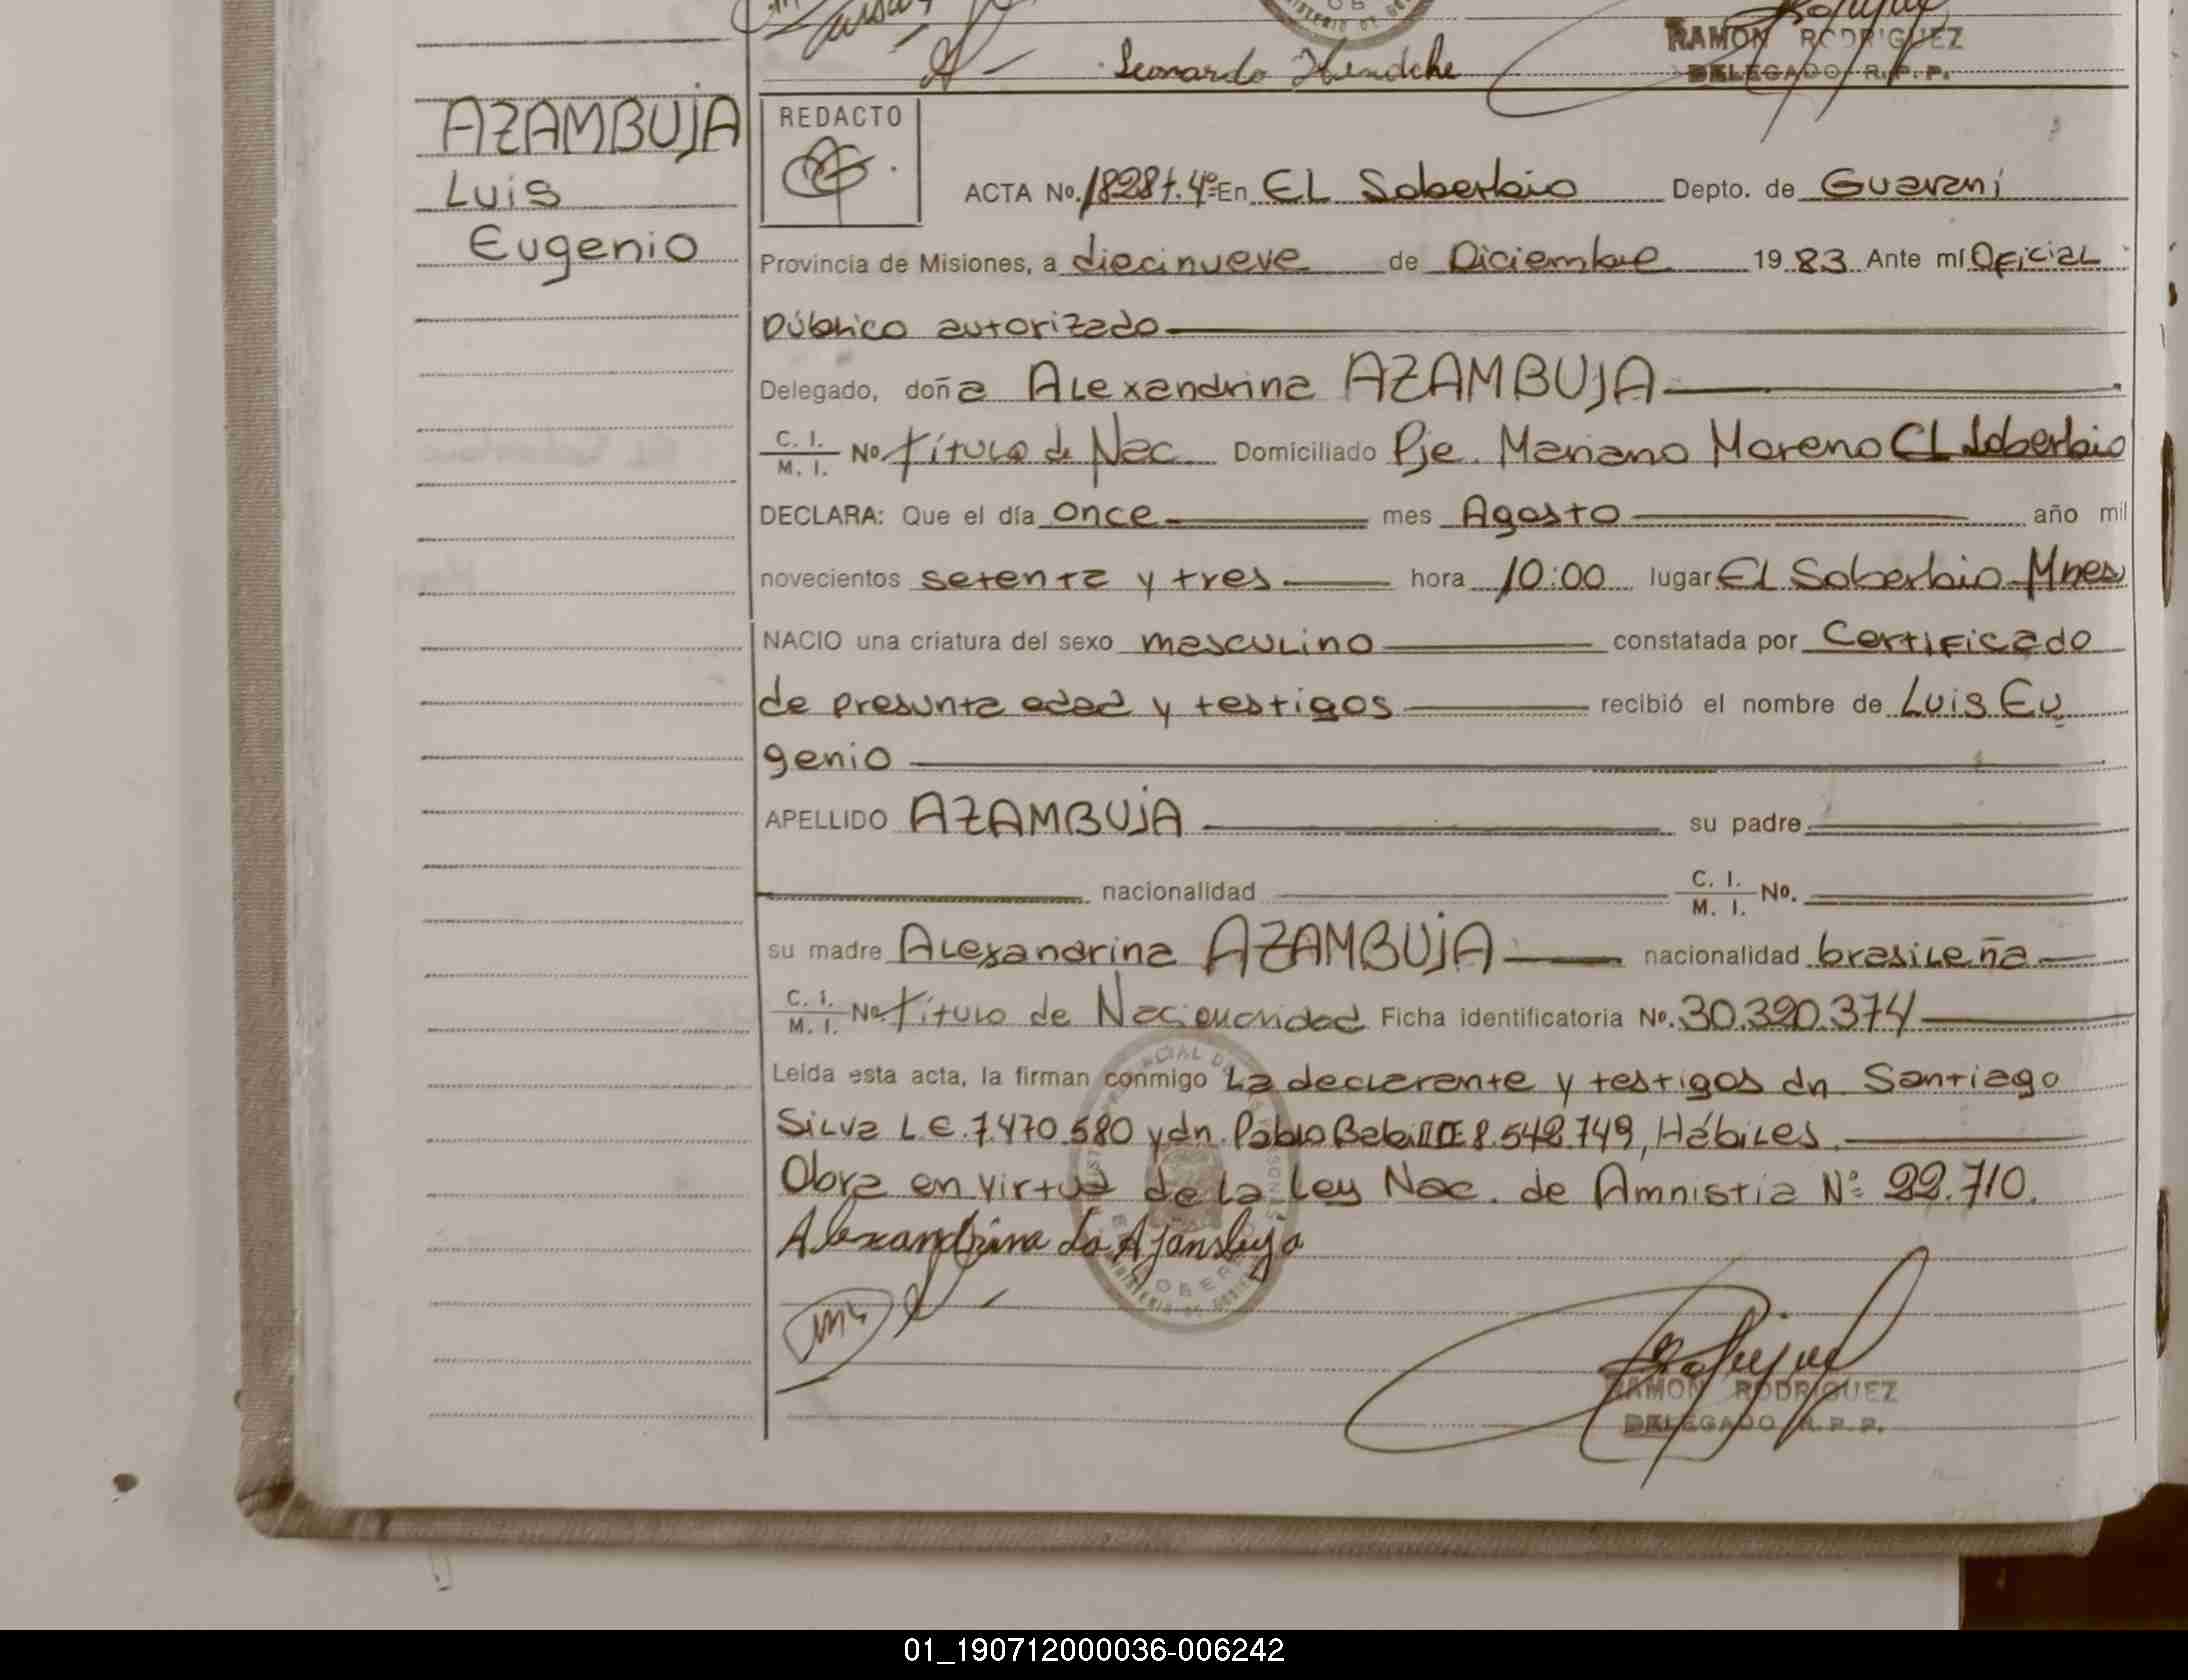 Leonardo
RAMON RODRIGUEZ
DELEGADO R.P.P.
AZAMBUJA
Luis
Eugenio
REDACTO
ACTA No. 1828 t. 4º En EL Soberbio Depto. de Guaraní
Provincia de Misiones, a diecinueve de Diciembre 1983 Ante mí Oficial
Público autorizado
Delegado, doña Alexandrina AZAMBUJA
C. I. / M. I. No título de Nac. Domiciliado Pje. Mariano Moreno El Soberbio
DECLARA: Que el día once mes Agosto año mil
novecientos setenta y tres hora 10:00 lugar El Soberbio Mnes
NACIO una criatura del sexo masculino constatada por Certificado
de presunta edad y testigos recibió el nombre de Luis Eu
genio
APELLIDO AZAMBUJA su padre
nacionalidad C. I. / M. I. No.
su madre Alexandrina AZAMBUJA nacionalidad brasileña
C. I. / M. I. No título de Nacionalidad Ficha identificatoria No. 30.320.374
Leída esta acta, la firman conmigo la declarante y testigos dn Santiago
Silva L.E. 7.470.580 y dn. Pablo 8.542.749, Hábiles
Obra en virtud de la Ley Nac. de Amnistia Nº 22.710.
Alexandrina
RAMON RODRIGUEZ
DELEGADO R.P.P.
01_190712000036-006242